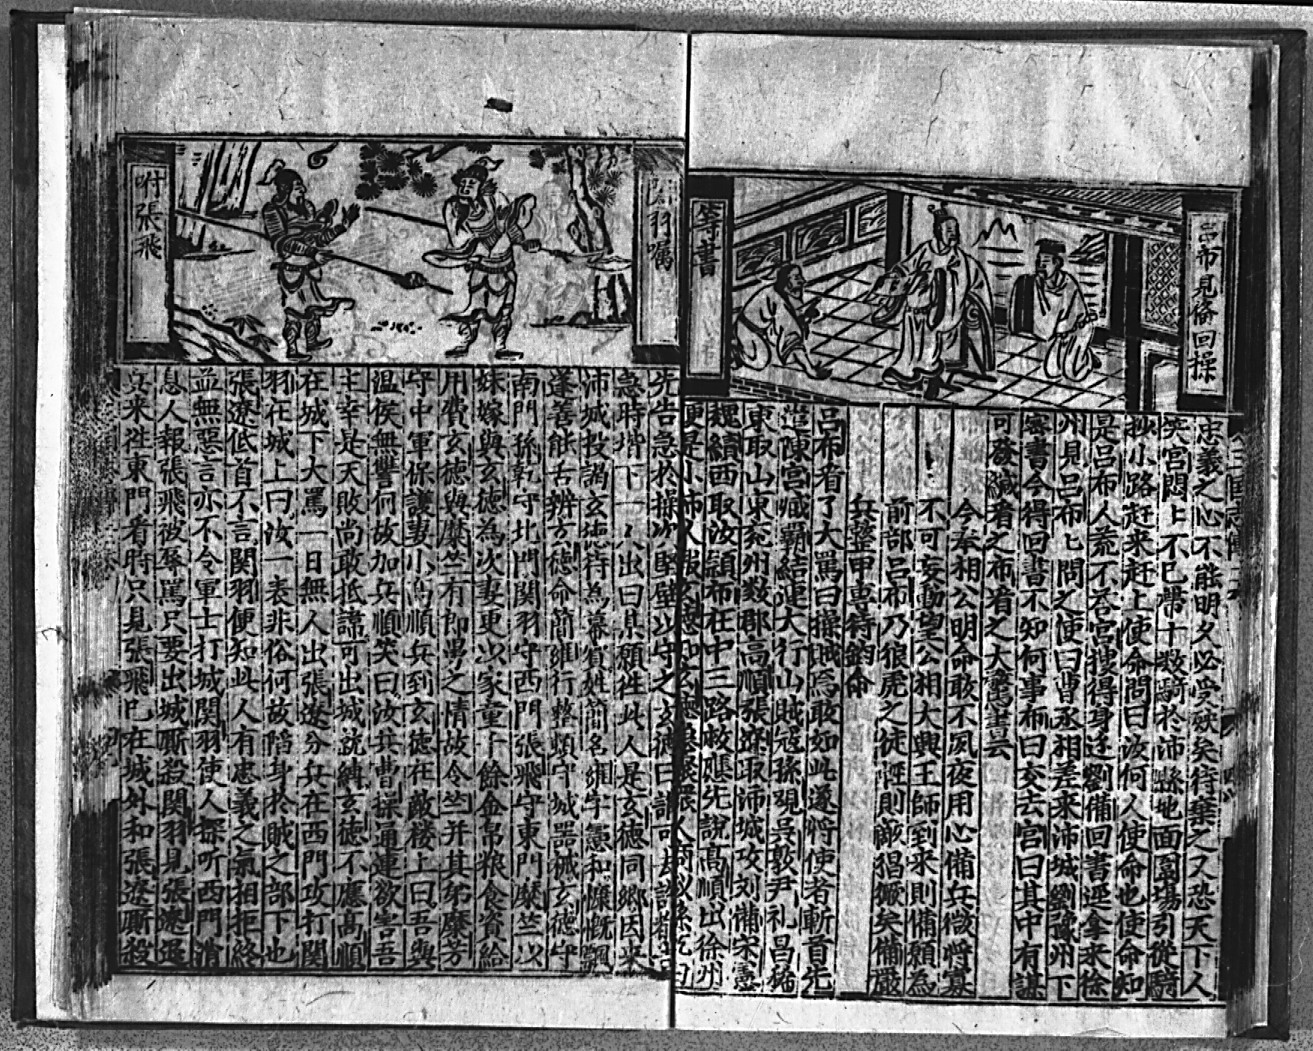 呂布見俻回操
等書
忠義之心不能明久必受殃矣待棄之又恐天下人
笑宮悶上不已帶十数騎於沛縣地面圍場引從騎
抄小路赶来赶上使命問曰汝何人使命也使命知
是吕布人荒不荅宮搜得身边劉備回書逕拿来徐
州見吕布匕問之使曰曹丞相差来沛城劉豫州下
密書今得回書不知何事布曰交去宮曰其中有謀
可發緘看之布看之大驚書云
今奉相公明命敢不夙夜用心備兵微將寡
不可妄動望公相大興王師到来則備願為
前部吕布乃狼虎之徒 則敵猖獗矣備嚴
兵整甲專待鈞命
吕布看了大罵曰操賊焉敢如此遂将使者斬首先
遣陳宮臧霸結連大行山賊冦孫覌吳敦尹礼昌豨
東取山東兖州数郡高順張遼取沛城攻刘備宋憲
魏續西取汝頴布在中三路救應先說高順出徐州
先告急於操 堅壁以守之玄德曰誰可
急時堦下一人出曰具願徃此人是玄德同郷因来
沛城投謁玄德待為幕賓姓簡名雍字憲和慷慨飄
逢善能舌辨玄德命簡雍行整頓守城器械玄德守
南門孫乾守北門関羽守西門張飛守東門糜竺以
妹嫁與玄德為次妻更以家童千餘金帛粮食資給
用費玄德與糜竺有郎舅之情故令竺并其弟糜芳
守中軍保護妻小高順兵到玄德在敵楼上曰吾與
温侯無讐何故加兵順笑曰汝共曹操通連欲害吾
主幸是天敗尚敢抵諱可出城就縛玄德不應髙順
在城下大罵一日無人出張遼分兵在西門攻打関
羽在城上曰汝一表非俗何故陷身於賊之部下也
張遼低首不言関羽便知此人有忠義之氣相拒終
並無惡言亦不令軍士打城関羽使人探听西門消
息人報張飛被辱罵只要出城厮殺関羽見張遼退
兵来徃東門看時只見張飛巳在城外和張遼厮殺
羽嘱
咐張飛